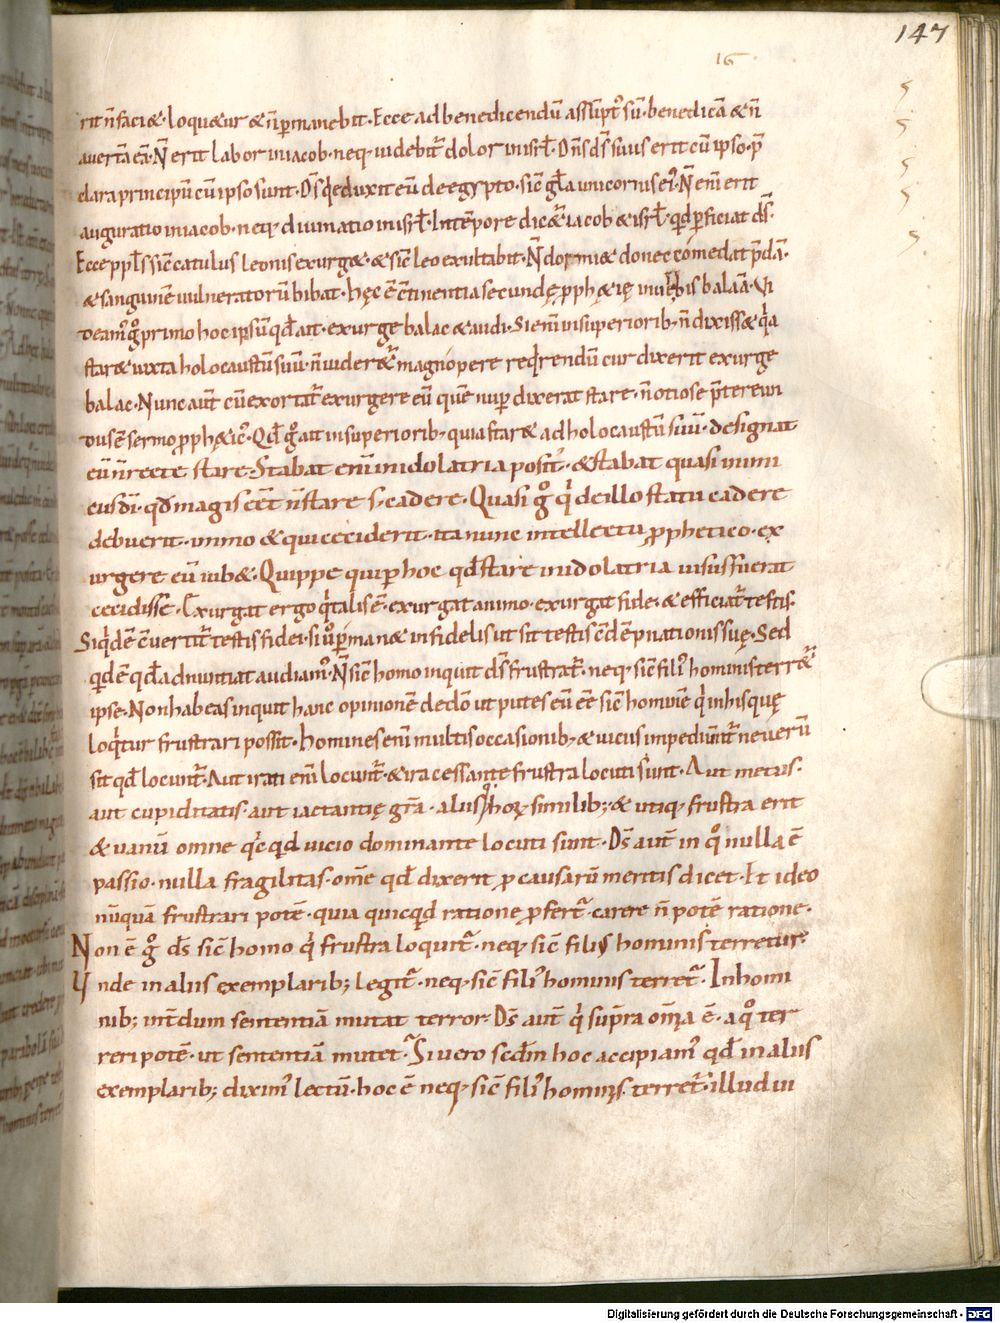 147
16
rit n̄ faci&. loqu&ur & n̄ ꝑmanebit. Ecce ad benedicendū assūpt᷒ sū. benedicā & n̄
auertā eā. N̄ erit labor in iacob. neq; uidebit᷑ dolor in isrł. Dn̄s ds̄ suus erit cū ipso. p̄
clara principū cū ipso sunt. Ds̄ q̇ eduxit eū de egypto. sic̄ gła unicornus ei᷒. N̄ eni̅ erit
auguratio in iacob. neq; diuinatio in isrł. In tēpore dic&᷑ iacob & isrł. qd̄ ꝑficiat ds̄.
Ecce ppl̄s sic̄ catulus leonis exurg&. & sic̄ leo exultabit. N̄ dormi& donec comedat p̄dā.
& sanguinē uulneratorū bibat. hęc ē c̄tinentia secundę ꝓph&ię in uerbis balaā. Vi
deam᷒ g̊ primo hoc ipsū qd̄ ait. exurge balac & audi. Si eni̅ in superiorib; n̄ dixiss& q̇a
star& iuxta holocaustū suū. n̄ uider&᷑ magnopere req̇rendū cur dixerit exurge
balac. Nunc aut̄ cū exortat᷑ exurgere eū quē nuꝑ dixerat stare. n̄ otiose p̄tereun
dus ē sermo ꝓph&ic᷒. Qd̄ g̊ ait in superiorib; quia star& ad holocaustū suū. designat
eū n̄ recte stare. Stabat eni̅ in idolatria posit᷒. & stabat quasi inimi
cus dī. qd̄ magis eēt n̄ stare s; cadere. Quasi g̊ q̇ de illo statu cadere
debuerit. immo & qui ceciderit. ita nunc intellectu ꝓphetico. ex
urgere eū iub&. Quippe qui ꝑ hoc qd̄ stare in idolatria uisus fuerat
cecidisse. Exurgat ergo q̇ talis ē. exurgat animo. exurgat fide. & efficiat᷑ testis.
Siq̇dē c̄uertit᷑ testis fidei. si ů ꝑman& infidelis ut sit testis c̄dēpnationis suę. Sed
q̇d ē qd̄ adnuntiat audiam᷒. N̄ sic̄ homo inquit ds̄ frustrat᷑. neq; sic̄ fili᷒ hominis terr&᷑
ipse. Non habeas inquit hanc opinionē de dō. ut putes eū eē sic̄ hominē q̇ in his quę
loq̇tur frustrari possit. Homines eni̅ multis occasionib; & uiciis impediunt᷑ ne uerū
sit qd̄ locunt᷑. Aut irati eni̅ locunt᷑. & ira cessante frustra locuti sunt. Aut metus.
aut cupiditatis. aut iactantię gr̄a. aliusq; hoꝝ similib; & utiq; frustra erit
& uanū omne q̇cq̇d uicio dominante locuti sunt. Ds̄ aut̄ in q̊ nulla ē
passio. nulla fragilitas. om̄e qd̄ dixerit ꝓ causarū meritis dicet. Et ideo
nūquā frustrari potē. quia quicq̇d ratione ꝓfert᷑. carere n̄ potē ratione.
Non ē g̊ ds̄ sic̄ homo q̇ frustra loquit᷑. neq; sic̄ filiꝰ hominis terretur.
Vnde in aliis exemplarib; legit᷑. neq; sic̄ fili᷒ hominis terret᷑. In homi
nib; int̄dum sententiā mutat terror. Ds̄ aut̄ q̇ supra om̄ia ē. a q̊ ter
reri potē. ut sententiā mutet? Si uero scdm̄ hoc accipiam᷒ qd̄ in aliis
exemplarib; dixim᷒ lectū. hoc ē neq; sic̄ fili᷒ hominis terret᷑. illud in
Digitalisierung gefördert durch die Deutsche Forschungsgemeinschaft - DFG